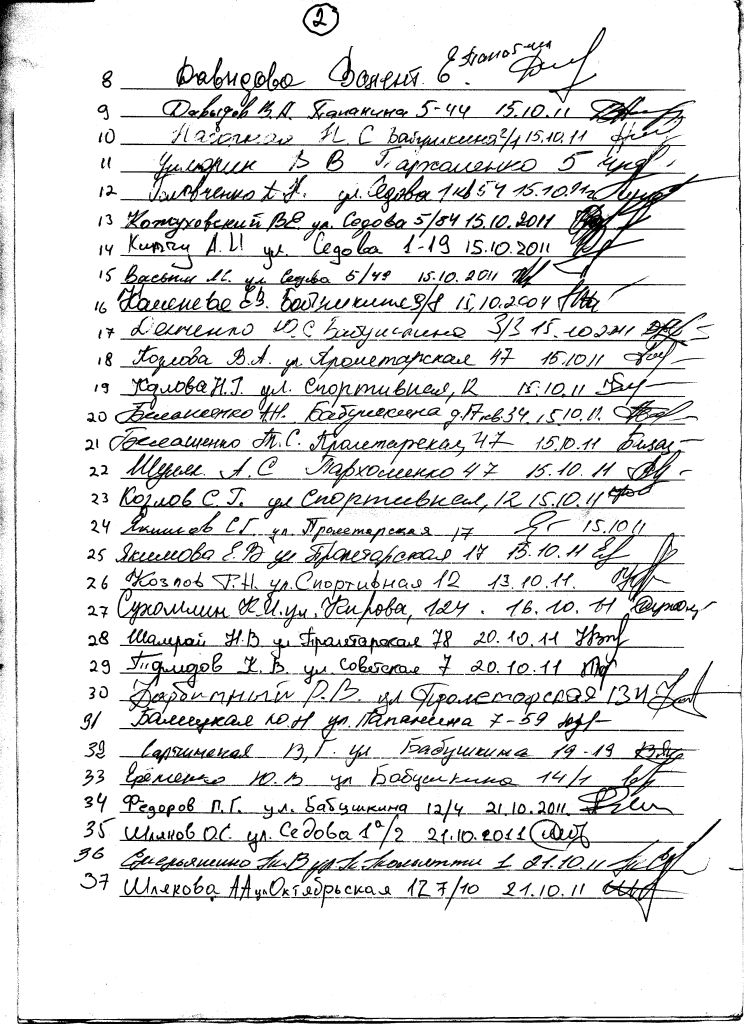 2
8 Давидова Валент. Е.
9 Давыдов В.А. Папанина 5-44 15.10.11
10 Н С Бабушкина 2/1 15.10.11
11 В В Пархоменко 5
12 Головченко А.Н. ул. Седова 1 кв 54 15.10.11г
13 Кожуховский В.Е. ул. Седова 5/84 15.10.2011
14 А.И ул. Седова 1-19 15.10.2011
15 Васьти ул Седова 5/49 15.10.2011
16 Каменева Бабушкина 15.10.
17 Демченко Ю.С Бабушкина 3/3 15.10.2011
18 Козлова В.А. ул Пролетарская 47 15.10.11
19 Козлова Н.Г. ул. Спортивная, 12 15.10.11
20 Белашенко А.Н. Бабушкина д.17 кв.34. 15.10.11.
21 Белашенко Т.С. Пролетарская, 47 15.10.11
22 А.С Пархоменко 47 15.10.11
23 Козлов С.Г. ул Спортивная, 12 15.10.11
24 Якимов С.Г. ул. Пролетарская 17 15.10.11
25 Якимова Е.В ул Пролетарская 17 15.10.11
26 Козлов Г.Н. ул. Спортивная 12 13.10.11.
27 Сухомлин К.И. ул. Кирова, 124. 16.10.11
28 Шамрай Н.В ул Пролетарская 78 20.10.11
29 К.В. ул. Советская 7 20.10.11
30 Карбитный Р.В. ул Пролетарская 134
31 Балицкая Ю.Н ул. Папанина 7-59
32 В,Г. ул Бабушкина 19-19
33 Ерёменко Ю.В ул Бабушкина 14/1
34 Фёдоров П.Г. ул. Бабушкина 12/4 21.10.2011.
35 Шлянов О.С. ул. Седова 1а/2 21.10.2011
36 Емельяненко ул. Тольятти 1 21.10.11
37 Шлякова А.А ул Октябрьская 127/10 21.10.11